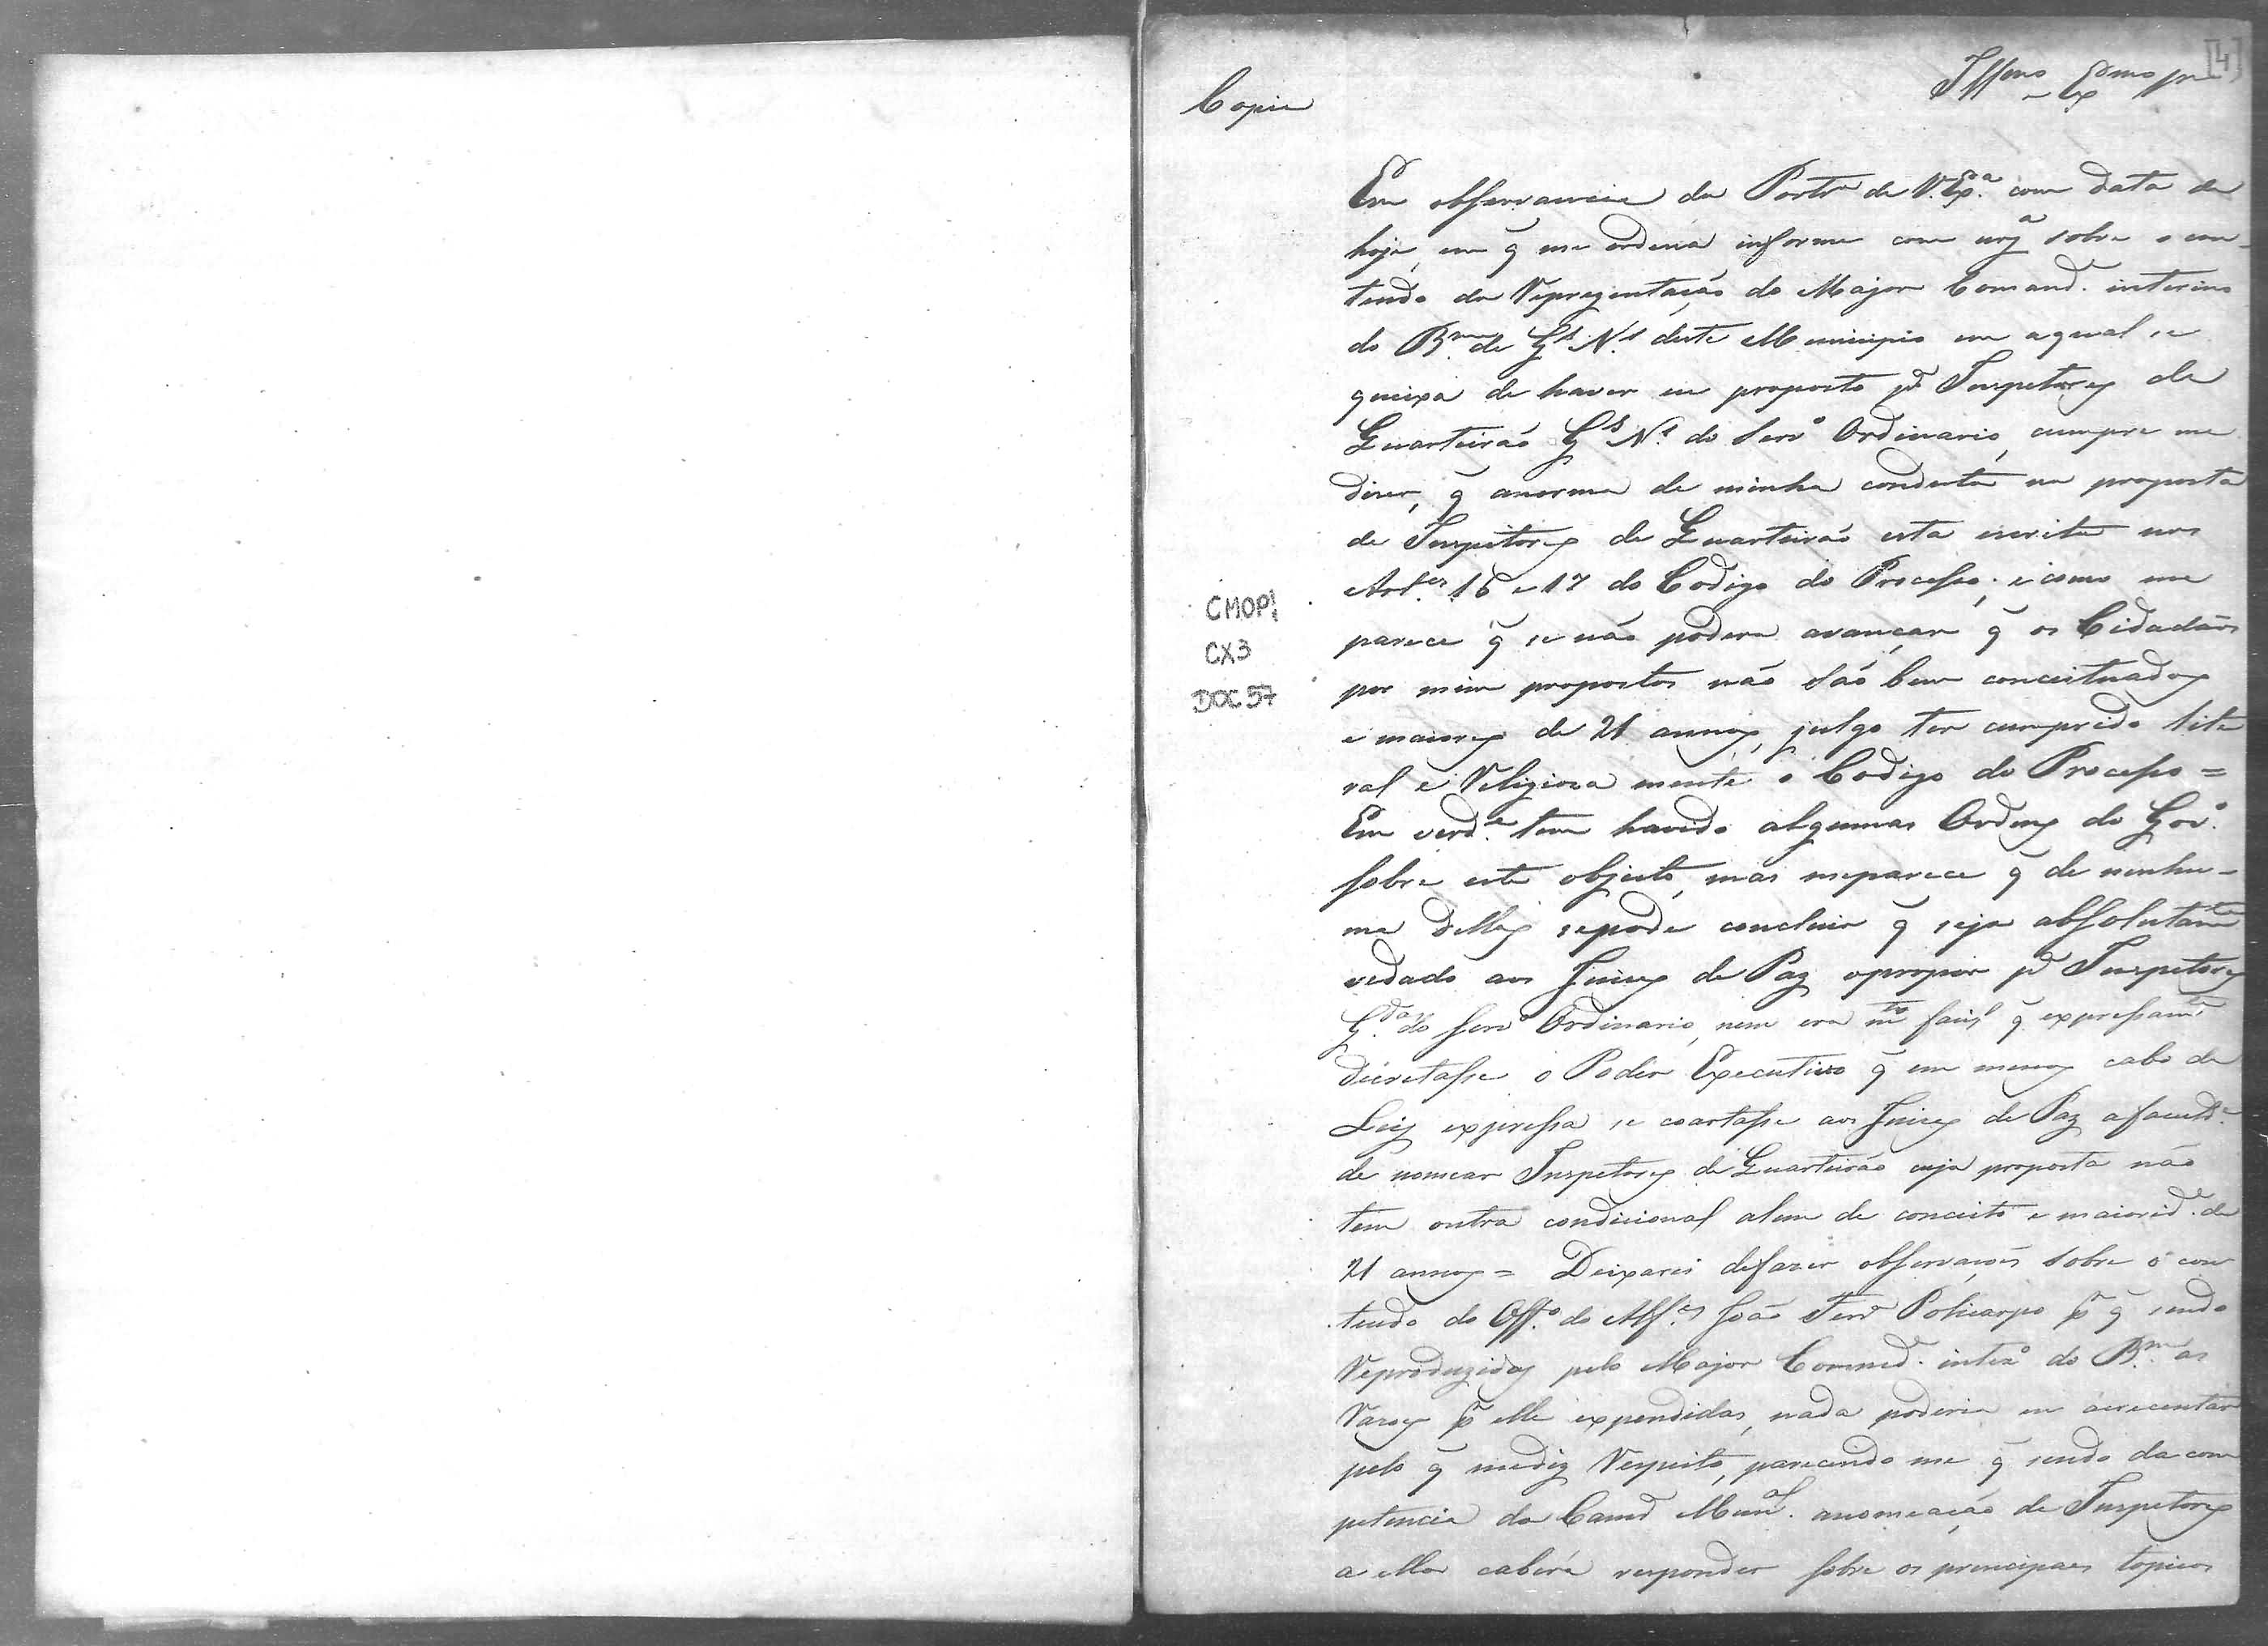 [4]
Illmo Exmo Snr
Copia
Em observancia da Portra de V. Exa. com data de
hoje, em q̃ me ordena informe com urga sobre o con-
teudo da Reprezentação do Major Comande. interino
do Bam. de Gs. Ns. deste Municipio em aqual se
queixa de haver eu proposto pa Inspetores de
Quarteirão Gs. Ns. do Servo Ordinario, cumpre me
dizer, q̃ anorma de minha conducta na proposta
de Inspetores de Quarteirão esta escrita nos
Artes. 16 e 17 do Codigo do Processo; e como me
parece q̃ se não podera avançar q̃ os Cidadãos
por mim propostos não são bem conceituados
e maiores de 21 annos, julgo ter cumprido lite
ral e Religioza mente o Codigo do Processo =
Em verde. tem havido algumas Ordens do Govo.
sobre este objecto, mas meparece q̃ de nenhu-
ma dellas sepode concluir q̃ seja absolutamte
vedado aos Juizes de Paz opropor pa Inspetores
G.das do Servo Ordinario, nem era mto facil q̃ expressamte
decretasse o Poder Executivo q̃ em menos cabo da
Ley expressa se coartasse aos Juizes de Paz afaculde.
de nomear Inspetores de Quarteirão cuja proposta não
tem outra condicional alem de conceito e maioride. de
21 annos = Deixarei defazer observaçoẽs sobre o con
teudo do Offo. do Alfes. João Ferra Policarpo p q̃ sendo
Reproduzidas pelo Major Commde. intero do Bam. as
Razoes p elle expendidas, nada poderia eu acrecentar
pelo q̃ mediz Respeito, parecendo me q̃ sendo da com
petencia da Camra Munal. anomeação de Inspetores
a ella caberá responder sobre os principaes topicos
CMOP/
CX3
DOC 57